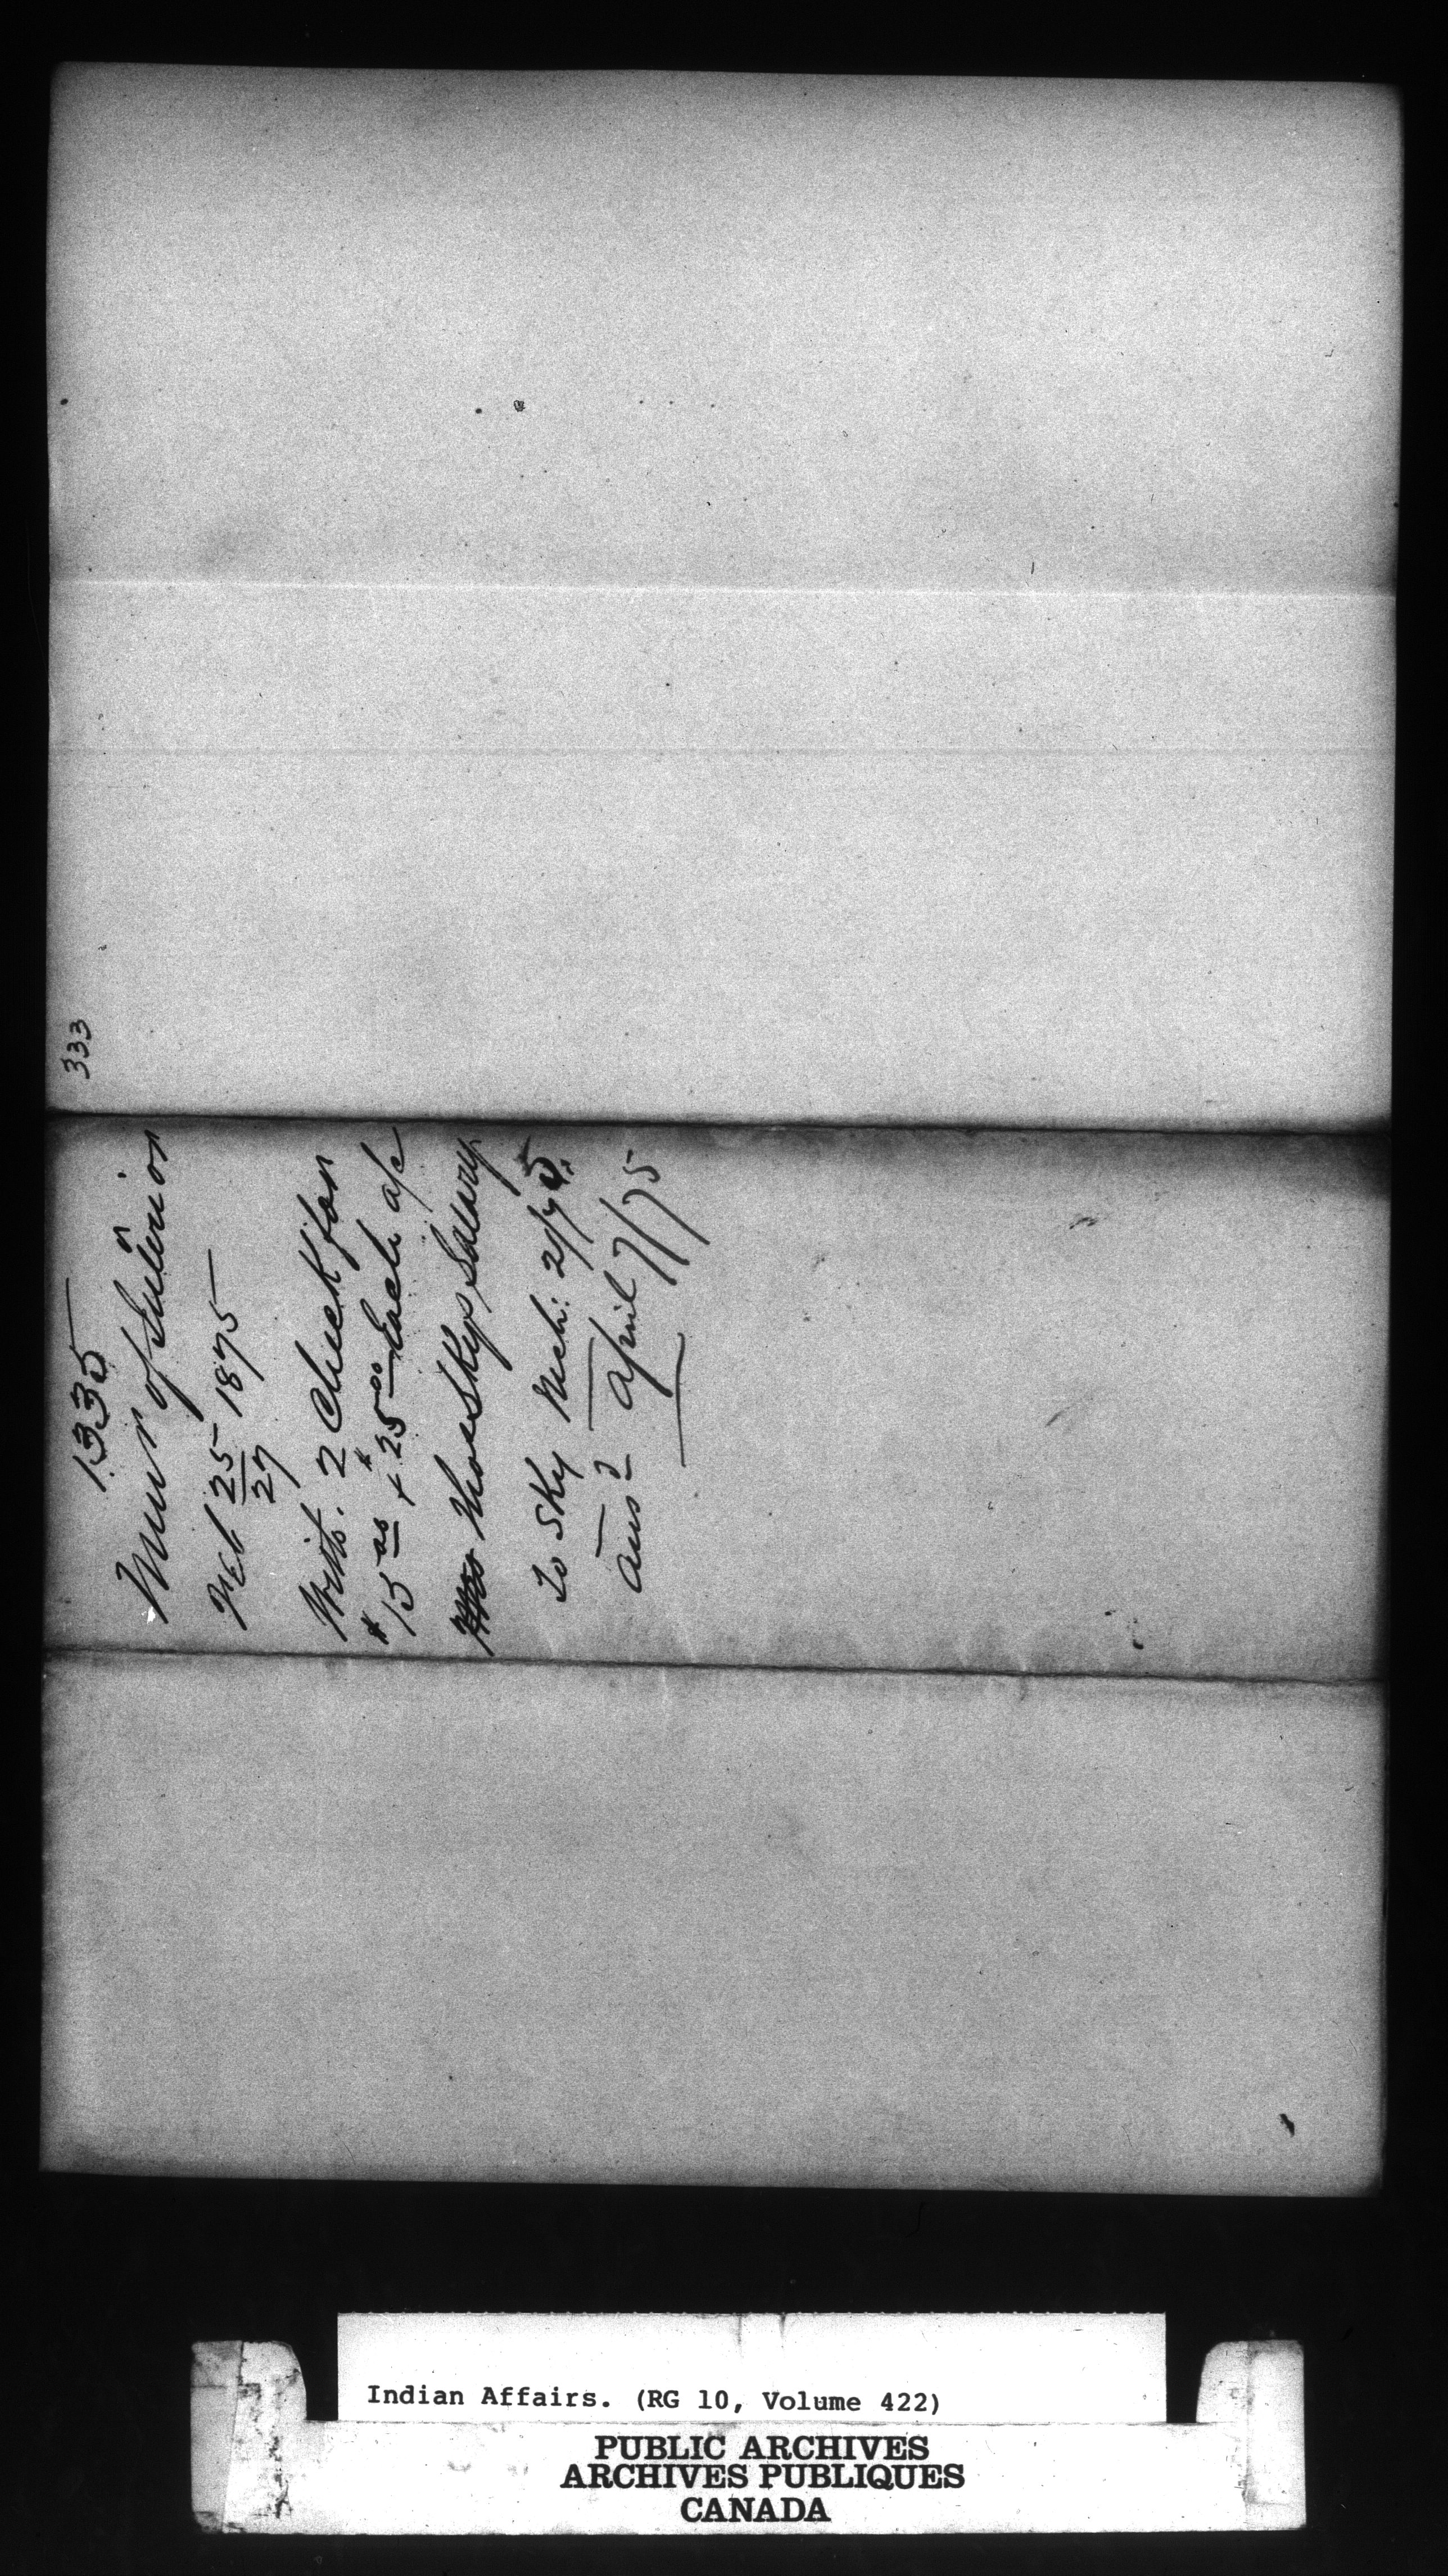 333
1335
Minr of Interior
Feb 25/27 1875
With. 2 Check for
$15.00 & $25.00 Each a/c
Thos Skys Salary
To Sky Mch: 2/75.
Ansd April 7/75
Indian Affairs. (RG 10, Volume 422)
PUBLIC ARCHIVES
ARCHIVES PUBLIQUES
CANADA